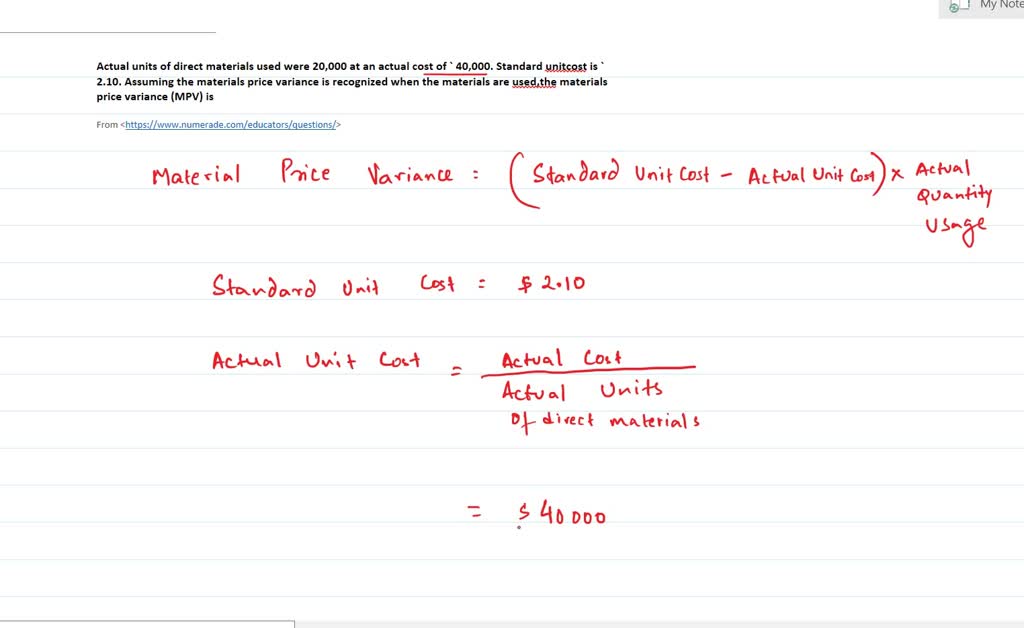 My Note
Actual units of direct materials used were 20,000 at an actual cost of ` 40,000. Standard unitcost is `
2.10. Assuming the materials price variance is recognized when the materials are used,the materials
price variance (MPV) is
From <https://www.numerade.com/educators/questions/>
Material Price Variance = (Standard Unit Cost - Actual Unit Cost) x Actual
Quantity
Usage
Standard Unit Cost = $ 2.10
Actual Unit Cost = Actual Cost
Actual Units
Of direct materials
= $ 40 000